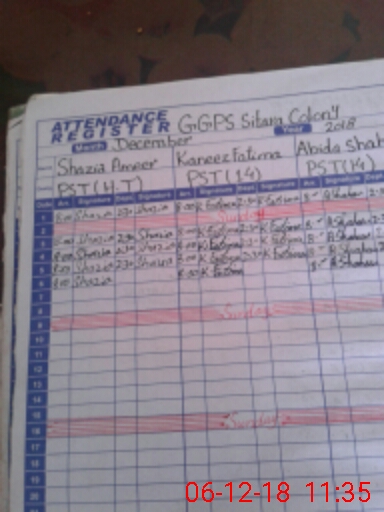 ATTENDANCE
REGISTER GGPS Sitara Colony
Month December Year 2018
Shazia Ameer Kaneez Fatima Abida Shah
PST (H.T) PST (14) PST (14)
Date Arr. Signature Dept. Signature Arr. Signature Dept. Signature Arr. Signature Dept.
1 8:00 Shazia 2:30 Shazia 8:00 K Fatima
2 Sunday
3 8:00 Shazia 2:30 Shazia 8:00 K Fatima 2:30 K Fatima
4 8:00 Shazia 2:30 Shazia 8:00 K Fatima 2:30 K Fatima
5 8:00 Shazia 2:30 Shazia 8:00 K Fatima
6 8:00 Shazia 8:00 K Fatima
7
8
9 Sunday
10
11
12
13
14
15
16 Sunday
17
18
19
20
06-12-18 11:35